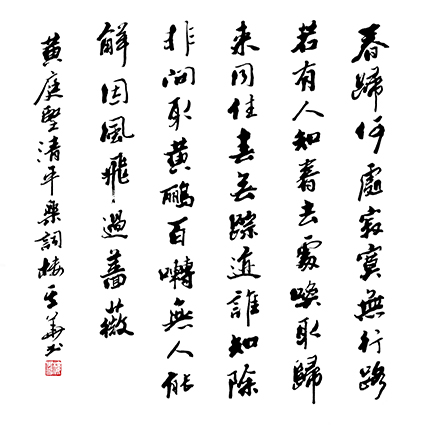 春歸何處寂寞無行路
若有人知春去處喚取歸
来同住春无踪迹誰知除
非问取黄鹂百囀無人能
解因風飛過薔薇
黄庭堅清平樂詞